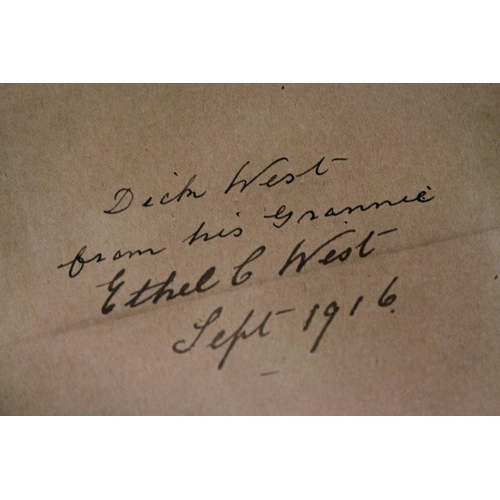 Dick West
from his Grannie
Ethel C West
Sept 1916